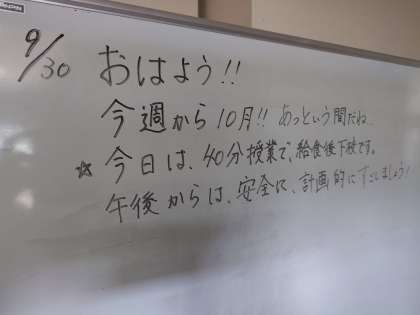 9/30 おはよう!!
今週から10月!! あっという間だね。
☆今日は、40分授業で、給食後下校です。
午後からは、安全に、計画的にすごしましょう!